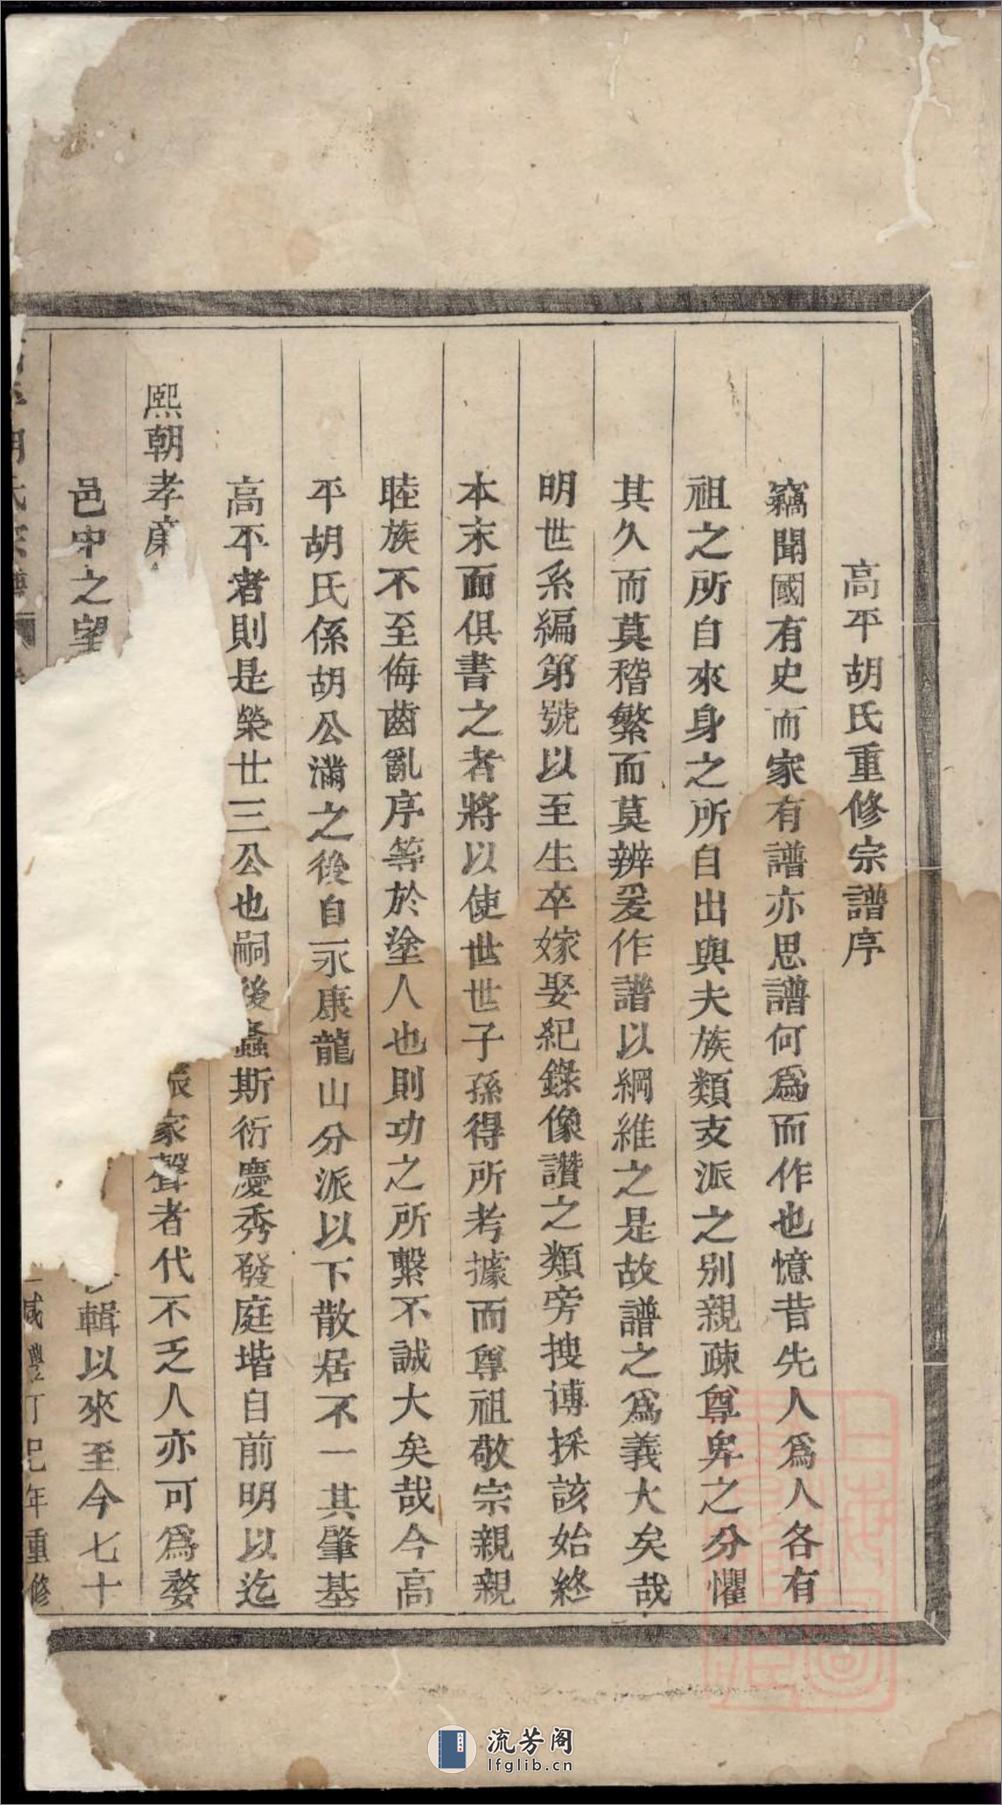 高平胡氏重修宗譜序
竊聞國有史而家有譜亦思譜何爲而作也憶昔先人爲人各有
祖之所自來身之所自出與夫族類支派之别親疎尊卑之分懼
其久而莫稽繁而莫辨爰作譜以綱維之是故譜之爲義大矣哉
明世系編第號以至生卒嫁娶紀錄像讚之類旁搜博採該始終
本末而俱書之者將以使世世子孫得所考據而尊祖敬宗親親
睦族不至侮齒亂序等於塗人也則功之所繫不誠大矣哉今高
平胡氏係胡公滿之後自永康龍山分派以下散居不一其肇基
高平者則是榮廿三公也嗣後螽斯衍慶秀發庭堦自前明以迄
熙朝孝廉
振家聲者代不乏人亦可爲婺
邑中之望
輯以來至今七十
平胡氏宗譜
咸豐丁巳年重修
流芳阁
lfglib.cn